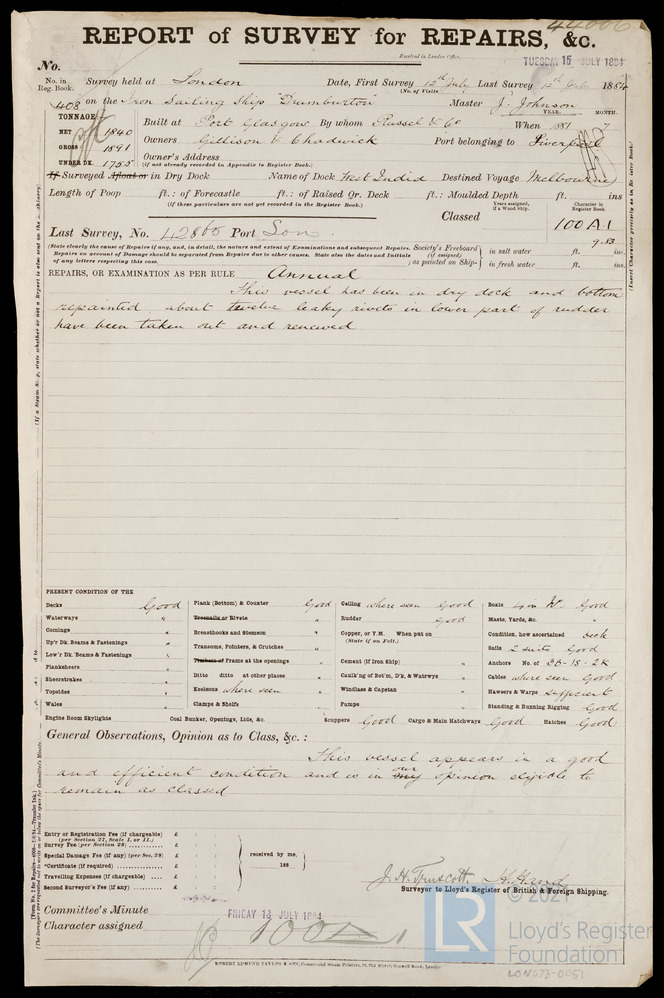 44006
REPORT of SURVEY for REPAIRS, &c.
Received in London Office,
TUESDAY 15 JULY 1884
No.
No. in Reg. Book. Survey held at London Date, First Survey 12th July Last Survey 12th July 1884
(No. of Visits
408 on the Iron Sailing Ship "Dumburton Master J. Johnson
TONNAGE YEAR. MONTH.
NET 1840 Built at Port Glasgow By whom Russel & Co When 1881 7
GROSS 1891 Owners Gillison & Chadwick Port belonging to Liverpool
UNDER DK. 1755 Owner's Address
(if not already recorded in Appendix to Register Book.)
If Surveyed Afloat or in Dry Dock Name of Dock West India Destined Voyage Melbourne
Length of Poop ft.: of Forecastle ft.: of Raised Qr. Deck ft.: Moulded Depth ft. ins.
(if these particulars are not yet recorded in the Register Book.)
Years assigned, if a Wood Ship. Character in Register Book.
Classed 100 A.1
Last Survey, No. 42865 Port Lon. 9.83
(State clearly the cause of Repairs if any, and, in detail, the nature and extent of Examinations and subsequent Repairs. Society's Freeboard in salt water ft. ins.
Repairs on account of Damage should be separated from Repairs due to other causes. State also the dates and Initials (if assigned)
of any letters respecting this case. as painted on Ship- in fresh water ft. ins.
REPAIRS, OR EXAMINATION AS PER RULE Annual
This vessel has been in dry dock and bottom
repainted about twelve leaky rivets in lower part of rudder
have been taken out and renewed
PRESENT CONDITION OF THE
Decks Good Plank (Bottom) & Counter Good Ceiling where seen Good Boats 4 in No. Good
Waterways " Treenails or Rivets " Rudder Good Masts, Yards, &c. "
Comings " Breasthooks and Stemson " Copper, or Y.M. When put on Condition, how ascertained Deck
(State if on Felt.)
Up'r Dk. Beams & Fastenings " Transoms, Pointers, & Crutches " Sails 2 suits Good
Low'r Dk. Beams & Fastenings " Timbers or Frame at the openings " Cement (if Iron Ship) " Anchors No. of 3B-1S-2K
Planksheers Ditto ditto at other places " Caulk'ng of Bot'm, D'k, & Watrwys " Cables where seen Good
Sheerstrakes " Keelsons where seen " Windlass & Capstan " Hawsers & Warps Sufficient
Topsides " Clamps & Shelfs " Pumps " Standing & Running Rigging Good
Wales "
Engine Room Skylights Coal Bunker, Openings, Lids, &c. Scuppers Good Cargo & Main Hatchways Good Hatches Good
General Observations, Opinion as to Class, &c.:
This vessel appears in a good
and efficient condition and is in our opinion eligible to
remain as classed
Entry or Registration Fee (if chargeable) £
(per Section 27, Scale 1, or 11.)
Survey Fee (per Section 28) £
Special Damage Fee (if any) (per Sec. 28) £ received by me,
*Certificate (if required) £ 188
Travelling Expenses (if chargeable) £
Second Surveyor's Fee (if any) £
J. H. Truscott.
Surveyor to Lloyd's Register of British & Foreign Shipping.
Committee's Minute FRIDAY 18 JULY 1884
Character assigned 100 A 1
© 2021
LR
Lloyd's Register
Foundation
LON673-0051